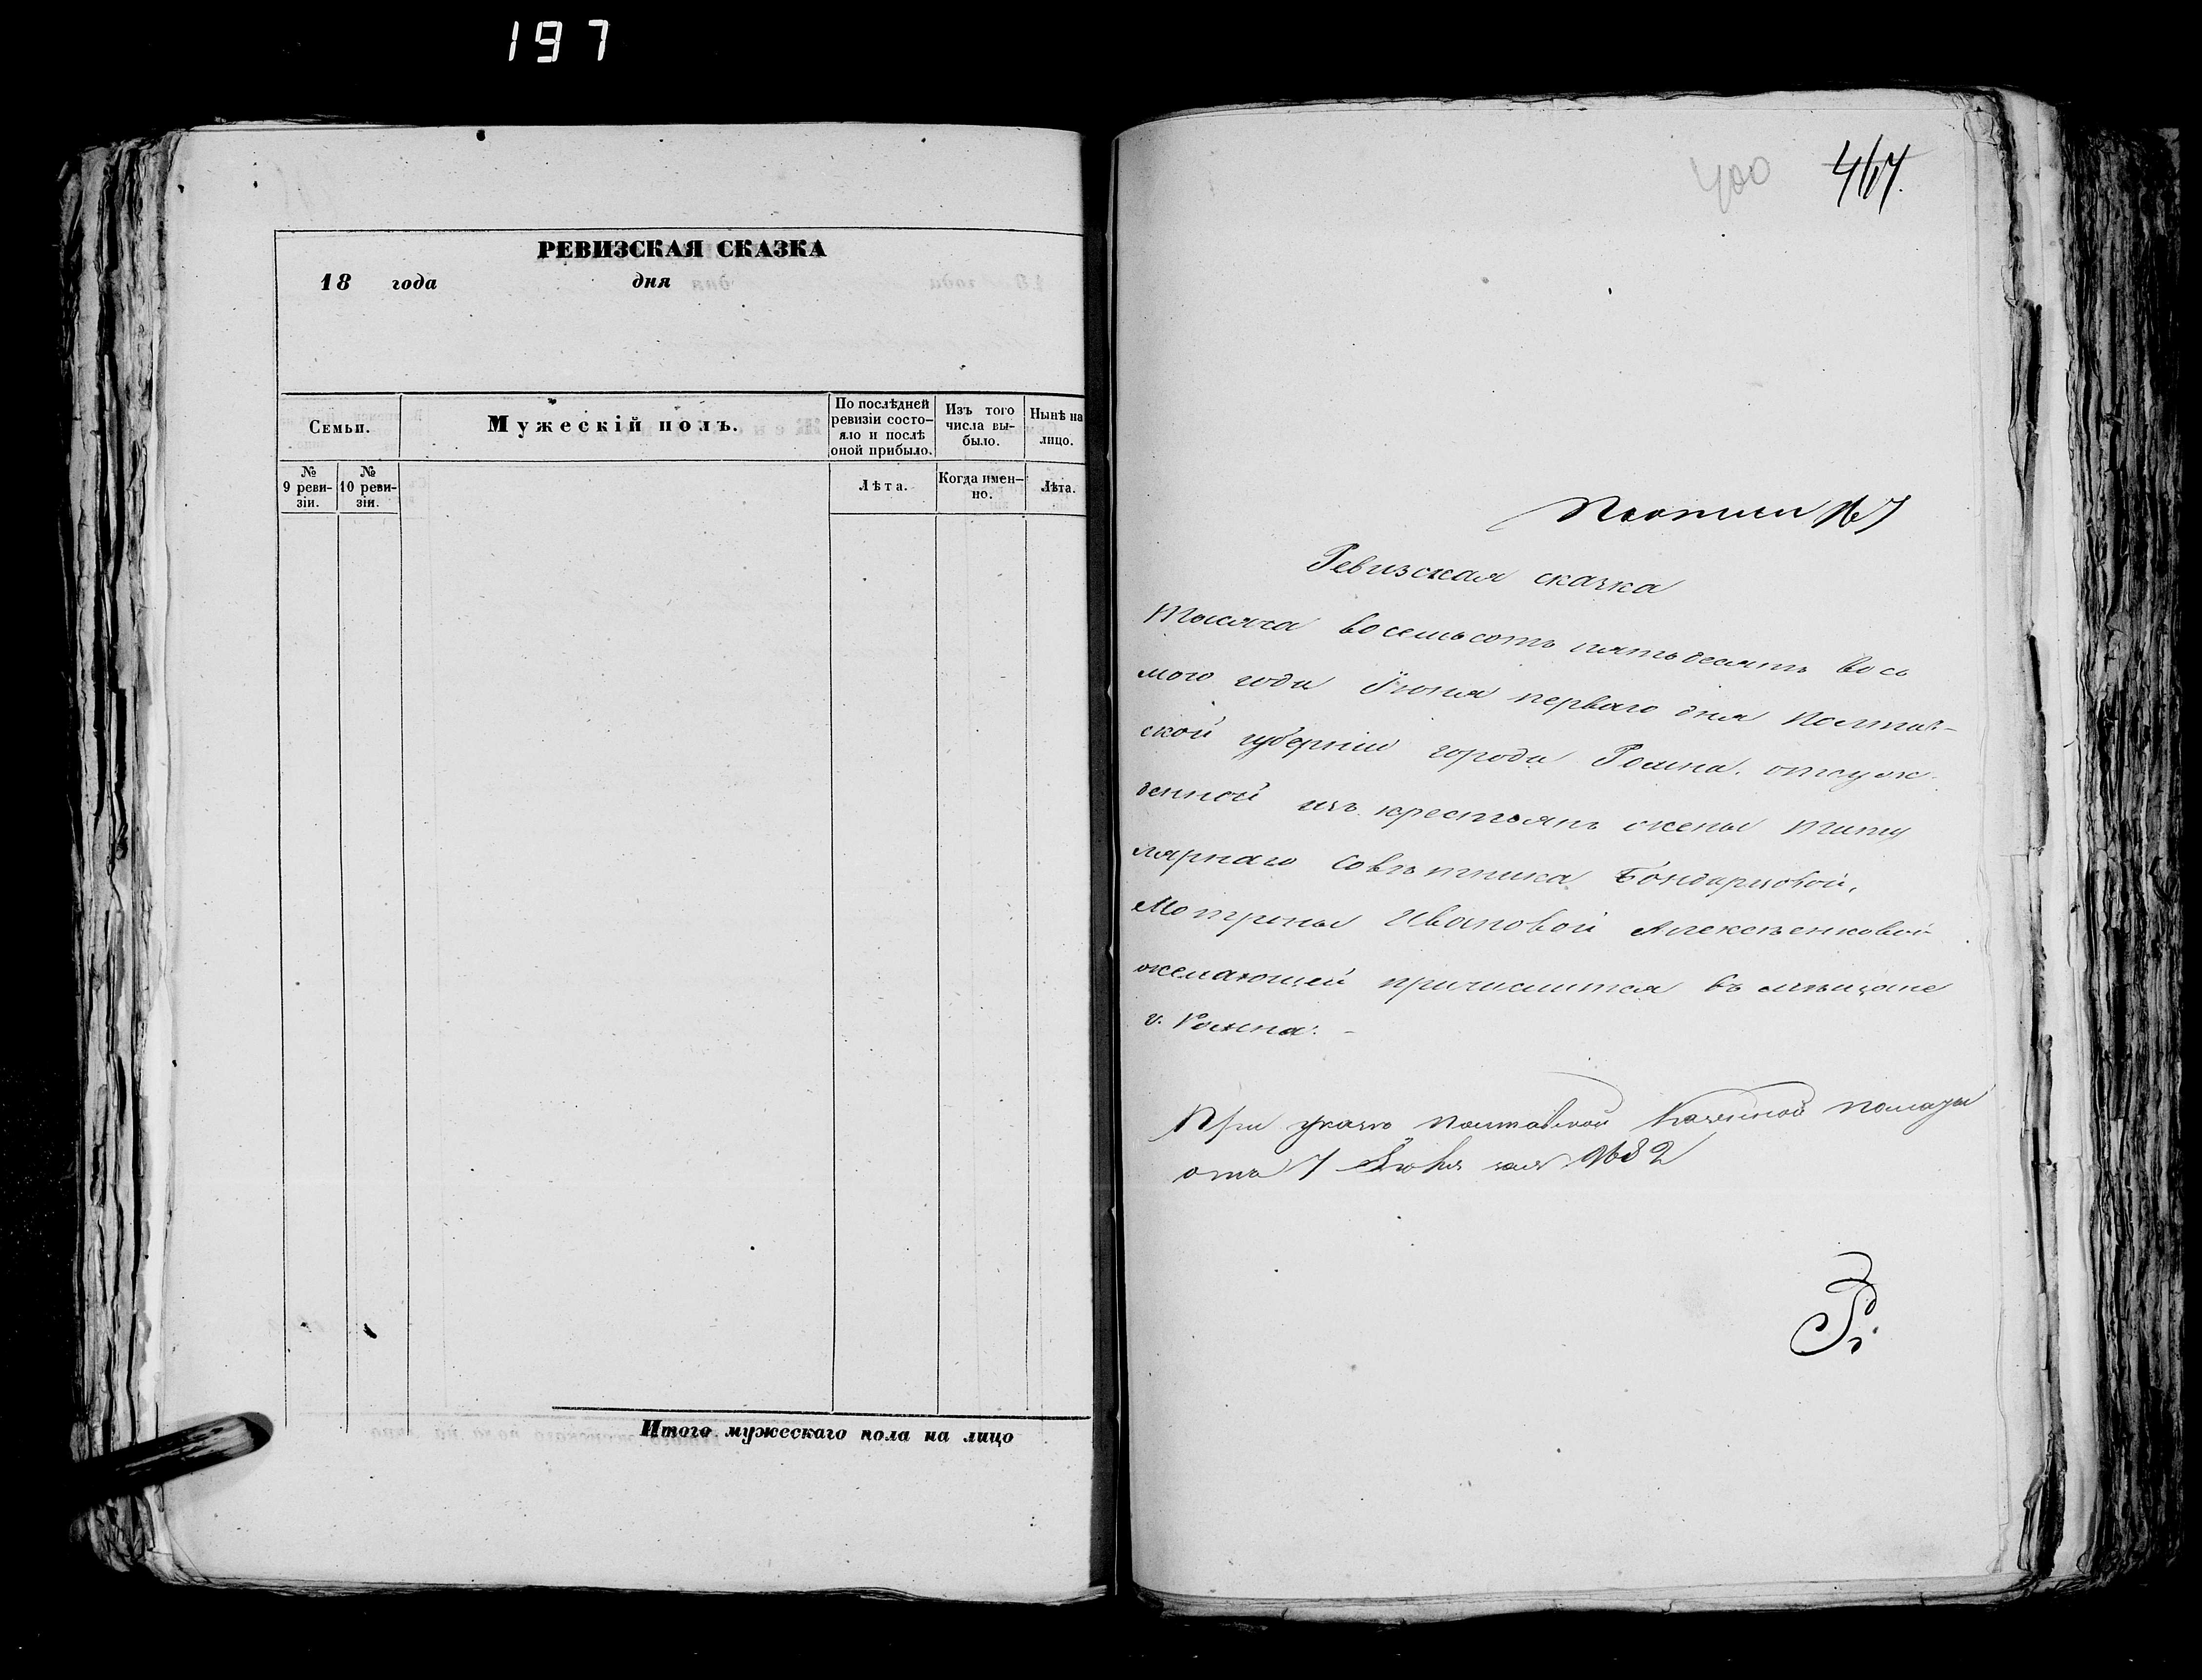 197
РЕВИЗСКАЯ СКАЗКА
18 года дня
Семьи.
Мужескій полъ.
По послѣдней ревизіи состояло и послѣ оной прибыло.
Изъ того числа выбыло.
Нынѣ на лицо.
№ 9 ревизіи.
№ 10 ревизіи.
Лѣта.
Когда именно.
Лѣта.
Итого мужескаго пола на лицо
400 467.
№ 7
Ревизская сказка
Тысяча восемьсотъ пятьдесятъ вось
мого года Іюня перваго дня Полтав-
ской губерніи города Ромна. отсуж
денной изъ крестьянъ жены титу
лярнаго Совѣтника Бондарцовой,
Мотроны Ивановой Алексѣенковой
желающей причислится въ мѣщане
г. Ромна: -
При указѣ Полтавской Казенной палаты
отъ 7 за № 9632